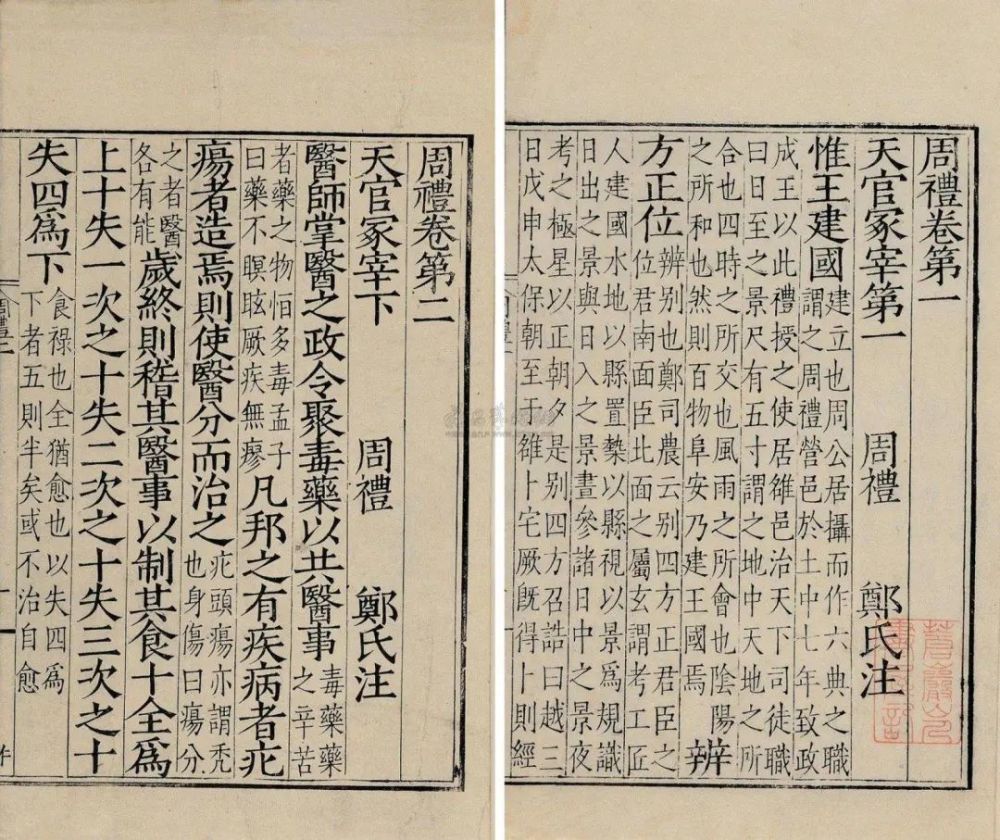 周禮卷第一
天官冢宰第一　周禮　鄭氏注
惟王建國
建立也周公居攝而作六典之職
謂之周禮營邑於土中七年致政
成王以此禮授之使居雒邑治天下司徒職
曰日至之景尺有五寸謂之地中天地之所
合也四時之所交也風雨之所會也陰陽
之所和也然則百物阜安乃建王國焉
辨
方正位
辨別也鄭司農云別四方正君臣之
位君南面臣北面之屬玄謂考工匠
人建國水地以縣置槷以縣視以景爲規識
日出之景與日入之景晝參諸日中之景夜
考之極星以正朝夕是別四方召誥曰越三
日戊申太保朝至于雒卜宅厥既得卜則經
周禮卷第二
天官冢宰下　周禮　鄭氏注
醫師掌醫之政令聚毒藥以共醫事
毒藥藥
之辛苦
者藥之物恒多毒孟子
曰藥不瞑眩厥疾無瘳
凡邦之有疾病者疕
瘍者造焉則使醫分而治之
疕頭瘍亦謂禿
也身傷曰瘍分
之者醫
各有能
歲終則稽其醫事以制其食十全爲
上十失一次之十失二次之十失三次之十
失四爲下
食祿也全猶愈也以失四爲
下者五則半矣或不治自愈
周禮二